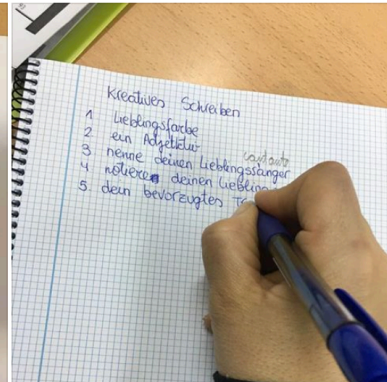 Kreatives Schreiben
1 Lieblingsfarbe
2 ein Adjektiv
3 nenne deinen Lieblingssänger
4 notiere deinen
5 dein bevorzugtes